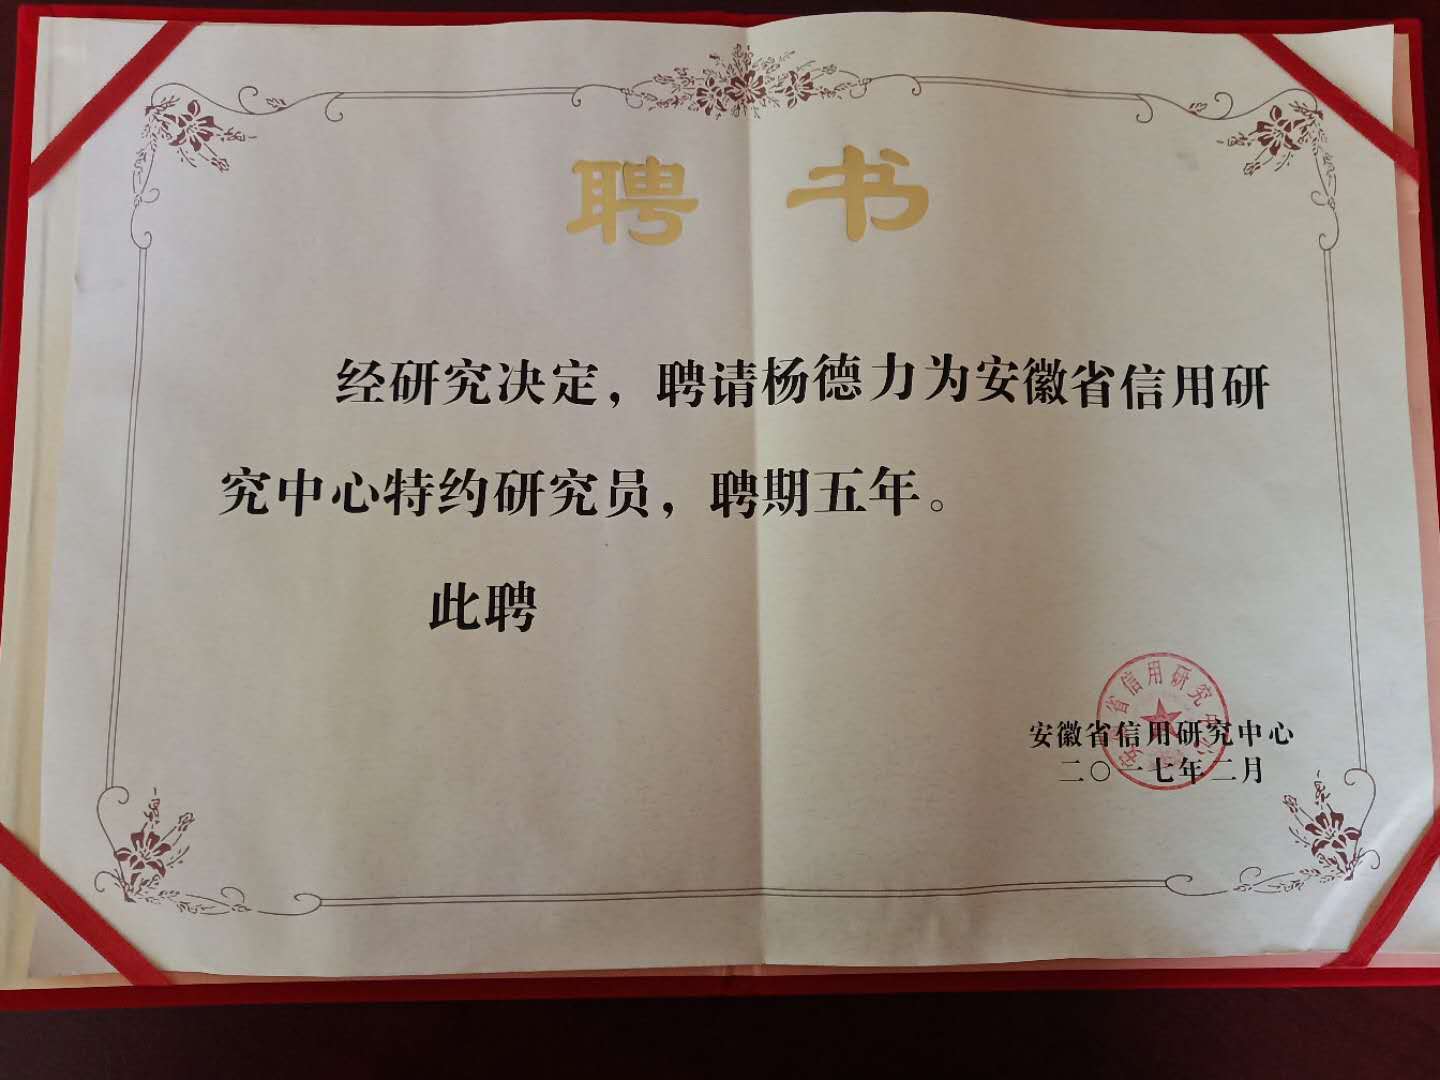 聘书
经研究决定，聘请杨德力为安徽省信用研
究中心特约研究员，聘期五年。
此聘
安徽省信用研究中心
安徽省信用研究中心
二〇一七年二月